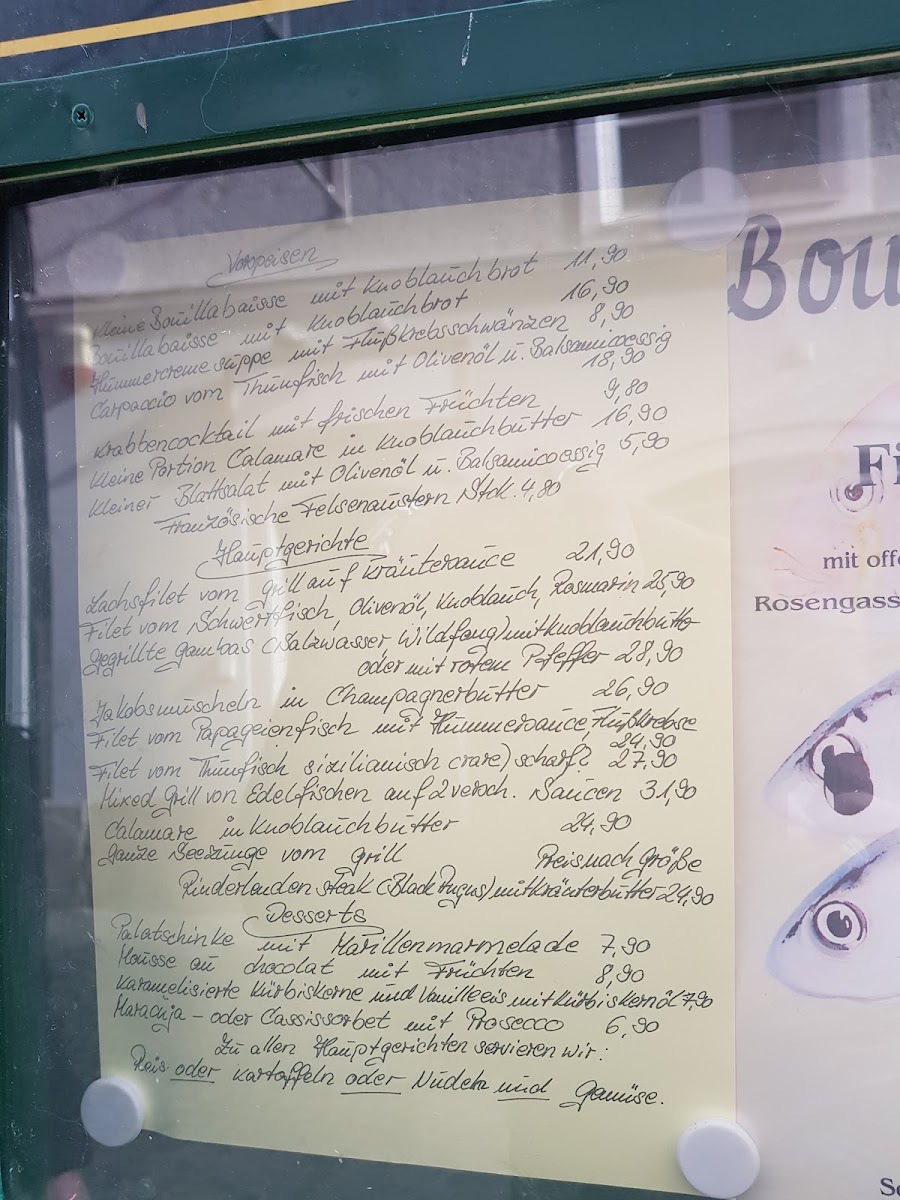 Vorspeisen
Kleine Bouillabaisse mit Knoblauchbrot 11,90
Bouillabaisse mit Knoblauchbrot 16,90
Hummercremesuppe mit Flußkrebsschwänzen 8,90
Carpaccio vom Thunfisch mit Olivenöl u. Balsamicoessig
18,90
Krabbencocktail mit frischen Früchten 9,80
Kleine Portion Calamare in Knoblauchbutter 16,90
Kleiner Blattsalat mit Olivenöl u. Balsamicoessig 5,90
Französische Felsenaustern Stck. 4,80
Hauptgerichte
Lachsfilet vom Grill auf Kräutersauce 21,90
Filet vom Schwertfisch, Olivenöl, Knoblauch, Rosmarin 25,90
Gegrillte Gambas (Salzwasser, Wildfang) mit Knoblauchbutter
oder mit rotem Pfeffer 28,90
Jakobsmuscheln in Champagnerbutter 26,90
Filet vom Papageienfisch mit Hummersauce, Flußkrebse
24,90
Filet vom Thunfisch sizilianisch (rare) scharf? 27,90
Mixed Grill von Edelfischen auf 2 versch. Saucen 31,90
Calamare in Knoblauchbutter 24,90
Ganze Seezunge vom Grill Preis nach Größe
Rinderlendensteak (Black Angus) mit Kräuterbutter 24,90
Desserts
Palatschinke mit Marillenmarmelade 7,90
Mousse au chocolat mit Früchten 8,90
Karamelisierte Kürbiskerne und Vanilleeis mit Kürbiskernöl 7,90
Maracuja - oder Cassissorbet mit Prosecco 6,90
Zu allen Hauptgerichten servieren wir:
Reis oder Kartoffeln oder Nudeln und Gemüse.
Bou
Fi
mit offe
Rosengass